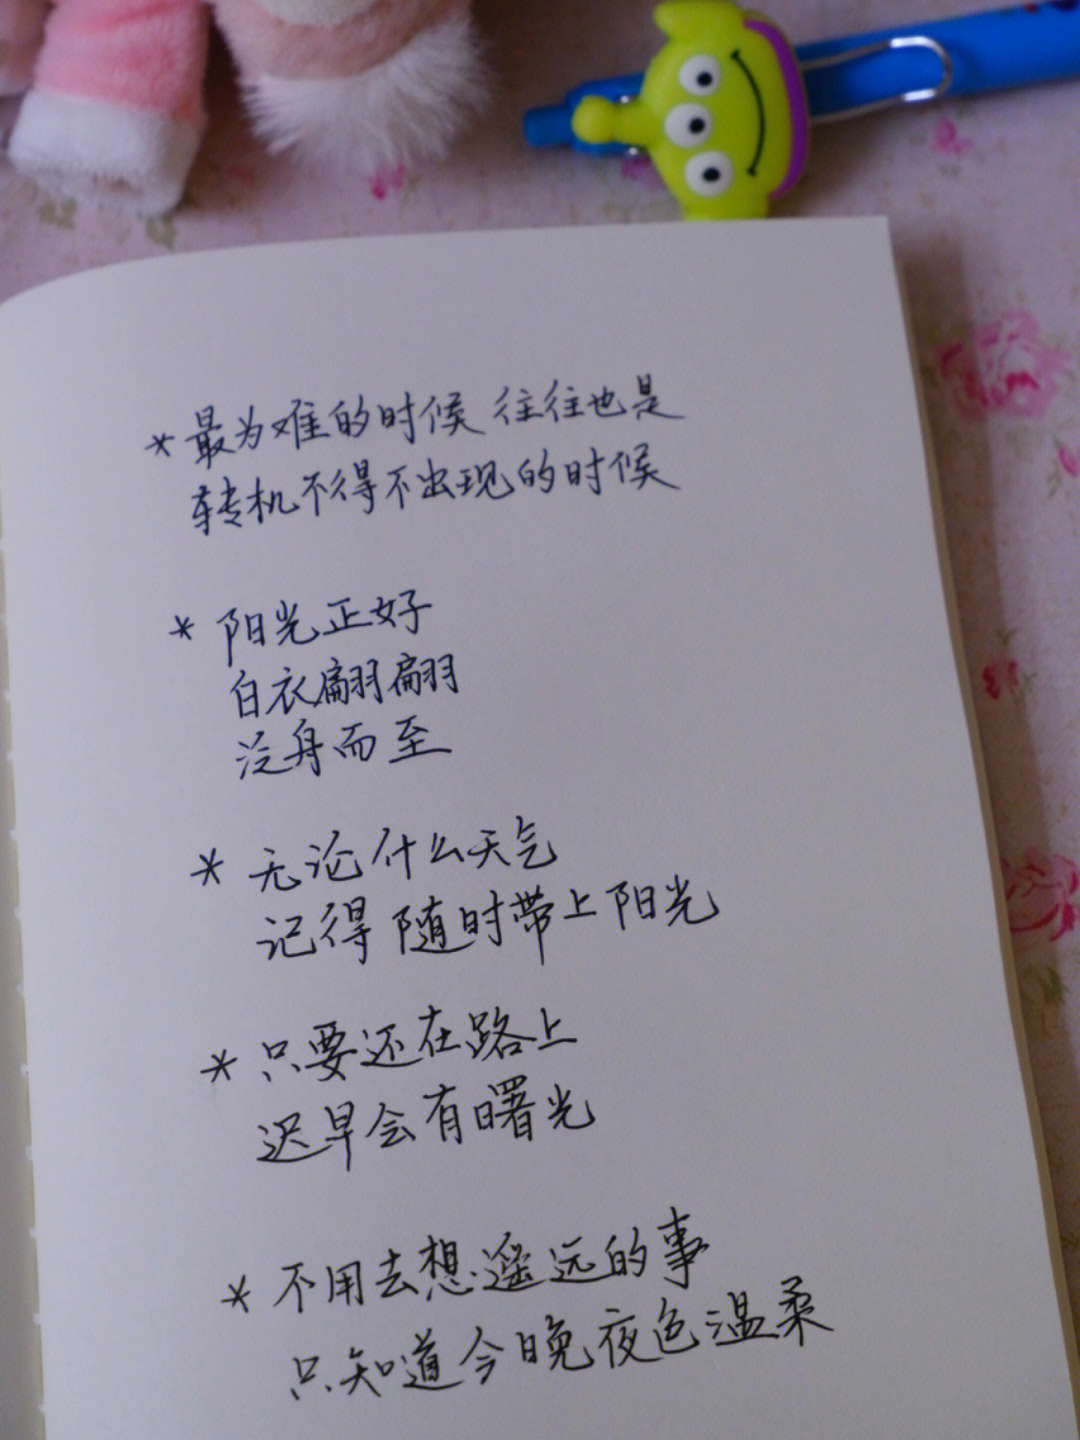 *最为难的时候 往往也是
转机不得不出现的时候
*阳光正好
白衣翩翩
泛舟而至
*无论什么天气
记得随时带上阳光
*只要还在路上
迟早会有曙光
*不用去想遥远的事
只知道今晚夜色温柔